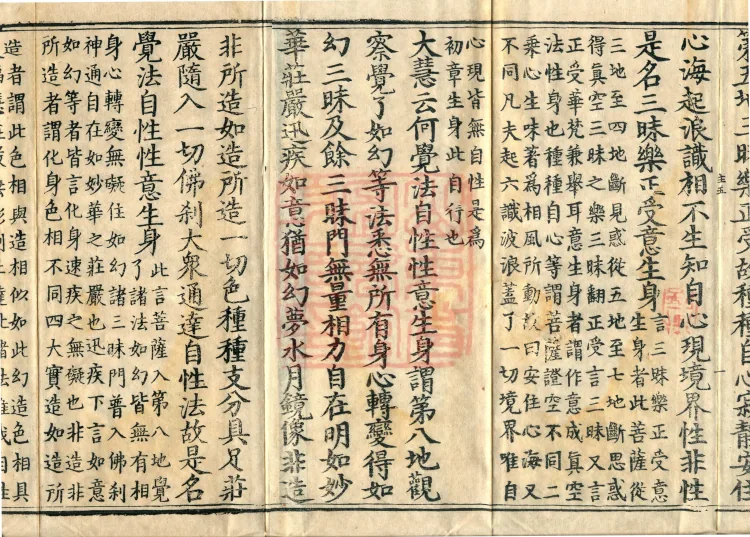 五地三昧樂正受故種種自心寂靜安住
心海起浪識相不生知自心現境界性非性
是名三昧樂正受意生身
言三昧樂正受意
生身者此菩薩從
三地至四地斷見惑從五地至七地斷思惑
得真空三昧之樂三昧翻正受言三昧又言
正受華梵兼舉耳意生身者謂作意成真空
法性身也種種自心等謂菩薩證空不同二
乘心生味著為相風所動故曰安住心海又
不同凡夫起六識波浪蓋了一切境界唯自
心現皆無自性是為
初章生身此自行也
大慧云何覺法自性性意生身謂第八地觀
察覺了如幻等法悉無所有身心轉變得如
幻三昧及餘三昧門無量相力自在明如妙
華莊嚴迅疾如意猶如幻夢水月鏡像非造
非所造如造所造一切色種種支分具足莊
嚴隨入一切佛剎大眾通達自性法故是名
覺法自性性意生身
此言菩薩入第八地覺
了諸法如幻皆無有相
身心轉變無礙住如幻諸三昧門普入佛剎
神通自在如妙華之莊嚴也迅疾下言如意
如幻等者皆言化身速疾之無礙也非造非
所造者謂化身色相不同四大實造如造所
造者謂此色相與造相似如此幻造色相具